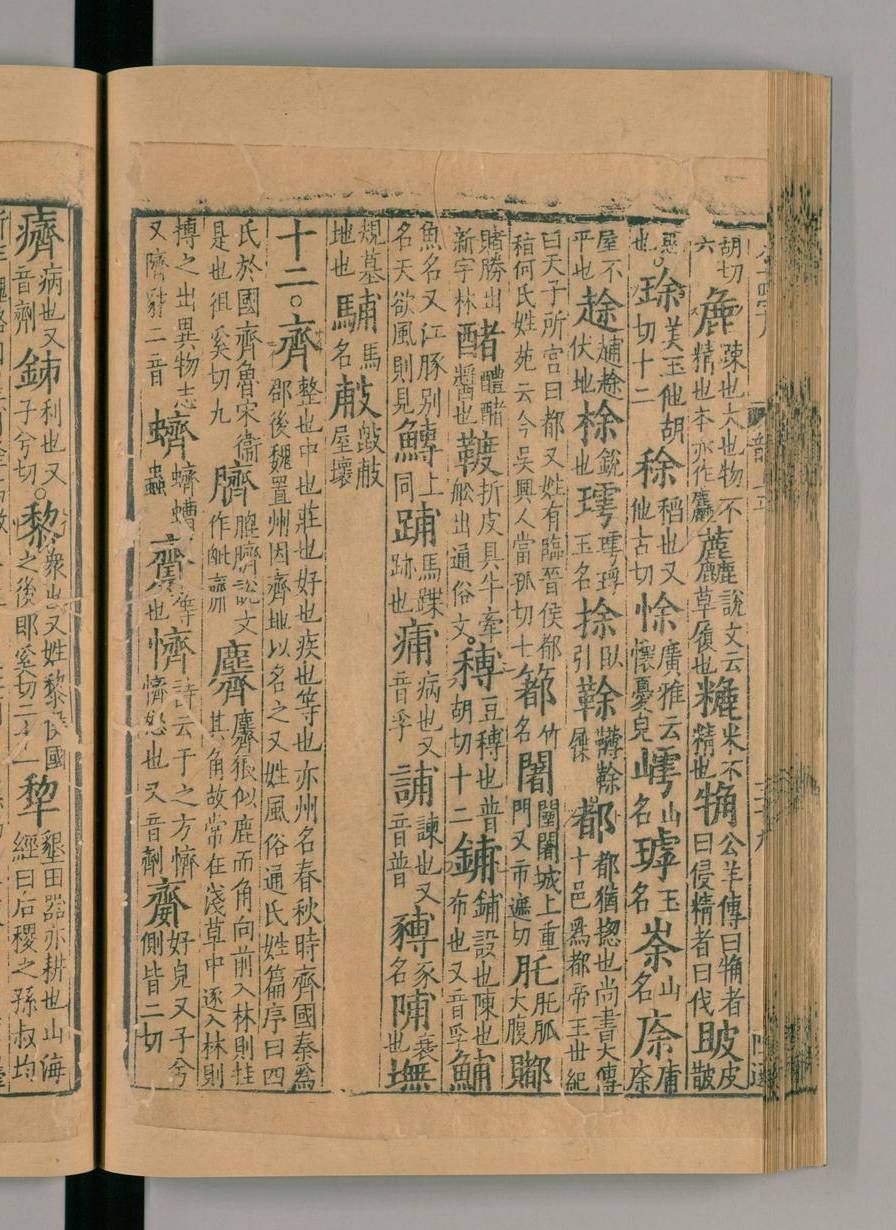 胡切六麁疎也大也物不精也本亦作麤𧆓說文云草履也𥻆米不精也觕公羊傳曰觕者曰侵精者曰伐皮皵
惡也。瑹美玉他胡切十二稌稻也又他古切悇廣雅云懷憂皃㟮山名㻯玉名峹山名庩庯庩
屋不平也䟻伏地梌銳也㻯玉名捈臥引䩣屧都都猶揔也尚書大傳十邑爲都帝王世紀
曰天子所宮曰都又姓有臨晉侯都稽何氏姓苑云今吳興人當孤切七䈃竹名闍闉闍城上重門又市遮切肚肚胍大腹䣝
賭勝出新字林䣷醬也䩲折皮具牛牽舩出通俗文。䅭豆䅭也普胡切十二鋪鋪設也陳也布也又音孚鯆
魚名又江豚別名天欲風則見鱄上同䠙馬蹀跡也痡病也又音孚誧諫也又音普豧豕名陠衺也墲
規墓地也䮒馬名㪔屋壞
十二。齊整也中也莊也好也疾也等也亦州名春秋時齊國秦爲郡後魏置州因齊地以名之又姓風俗通氏姓篇序曰四
氏於國齊魯宋衞是也徂奚切九臍膍臍說文作𣬈齎麡麡狼似鹿而角向前入林則挂其角故常在淺草中逐入林則
搏之出異物志又隮豺二音蠐蠐螬蟲𪗇等也懠詩云于之方懠懠怒也又音劑齌好皃又子兮側皆二切
病也又音劑䥓利也又子兮切。黎衆也又姓黎侯國之後郎奚切二十一犂墾田器亦耕也山海經曰后稷之孫叔均